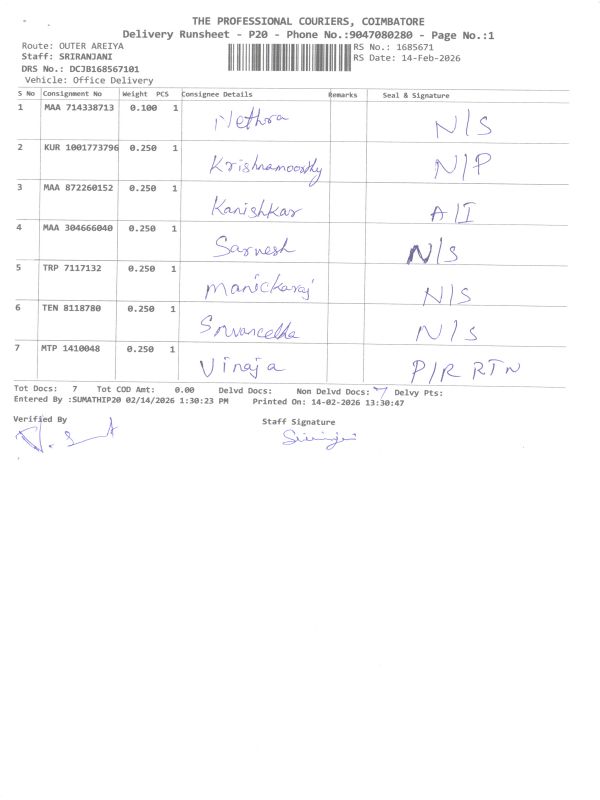 THE PROFESSIONAL COURIERS, COIMBATORE
Delivery Runsheet - P20 - Phone No.:9047080280 - Page No.:1
Route: OUTER AREIYA
RS No.: 1685671
Staff: SRIRANJANI
RS Date: 14-Feb-2026
DRS No.: DCJB168567101
Vehicle: Office Delivery
S No Consignment No Weight PCS Consignee Details Remarks Seal & Signature
1 MAA 714338713 0.100 1 Nethra N/S
2 KUR 1001773796 0.250 1 Krishnamoorthy N/P
3 MAA 872260152 0.250 1 Kanishkar A/I
4 MAA 304666040 0.250 1 Sarvesh N/S
5 TRP 7117132 0.250 1 Manickaraj N/S
6 TEN 8118780 0.250 1 N/S
7 MTP 1410048 0.250 1 Viraja P/R RTN
Tot Docs: 7 Tot COD Amt: 0.00 Delvd Docs: Non Delvd Docs: 7 Delvy Pts:
Entered By :SUMATHIP20 02/14/2026 1:30:23 PM Printed On: 14-02-2026 13:30:47
Verified By
Staff Signature